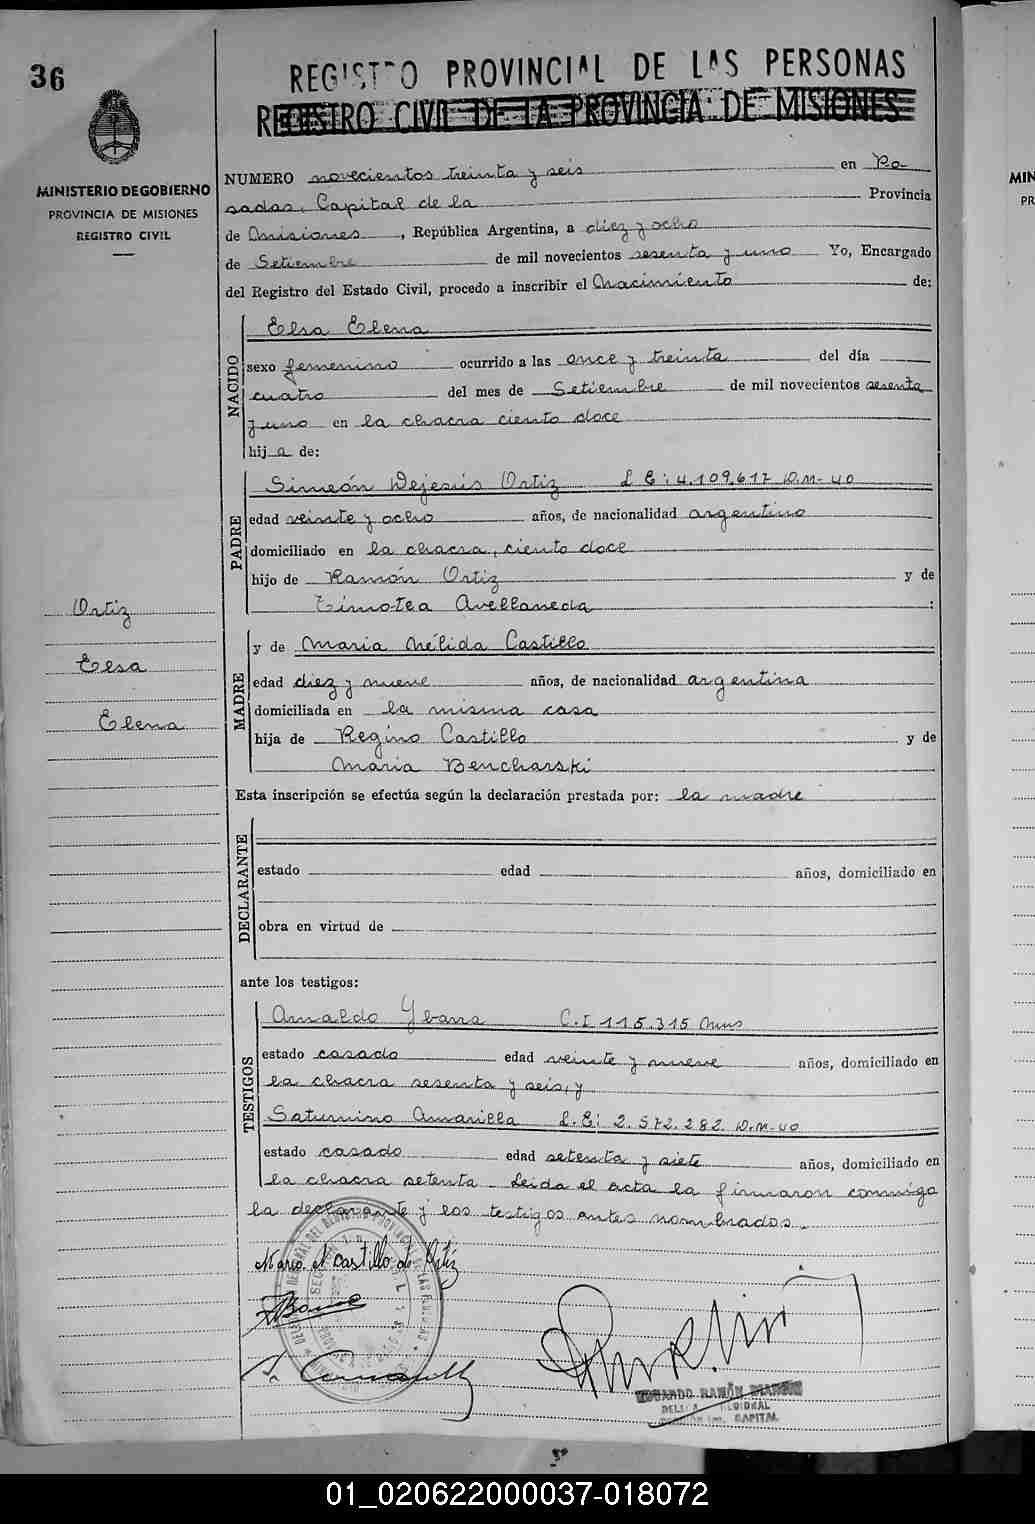 36
REGISTRO PROVINCIAL DE LAS PERSONAS
REGISTRO CIVIL DE LA PROVINCIA DE MISIONES
MINISTERIO DE GOBIERNO
PROVINCIA DE MISIONES
REGISTRO CIVIL
NUMERO novecientos treinta y seis en Po-
sadas, Capital de la Provincia
de Misiones, República Argentina, a diez y ocho
de Setiembre de mil novecientos sesenta y uno Yo, Encargado
del Registro del Estado Civil, procedo a inscribir el Nacimiento de:
NACIDO
Elsa Elena
sexo femenino ocurrido a las once y treinta del día
cuatro del mes de Setiembre de mil novecientos sesenta
y uno en la chacra ciento doce
hija de:
PADRE
Simeón Dejesús Ortiz L E: 4.109.617 D.M- 40
edad veinte y ocho años, de nacionalidad argentino
domiciliado en la chacra, ciento doce
hijo de Ramón Ortiz y de
Timotea Avellaneda :
MADRE
y de Maria Nélida Castillo
edad diez y nueve años, de nacionalidad argentina
domiciliada en la misma casa
hija de Regino Castillo y de
Maria Bencharski
Ortiz
Elsa
Elena
Esta inscripción se efectúa según la declaración prestada por: la madre
DECLARANTE
estado edad años, domiciliado en
obra en virtud de
ante los testigos:
TESTIGOS
Arnaldo Ybarra C.I 115.315 Mnes
estado casado edad veinte y nueve años, domiciliado en
la chacra sesenta y seis, y
Saturnino Amarilla L.E: 2.572.282 D.M-40
estado casado edad setenta y siete años, domiciliado en
la chacra setenta. Leida el acta la firmaron conmigo
la declarante y los testigos antes nombrados.
Maria N Castillo de Ortiz
EDUARDO RAMÓN
CAPITAL
MIN
PR
01_020622000037-018072